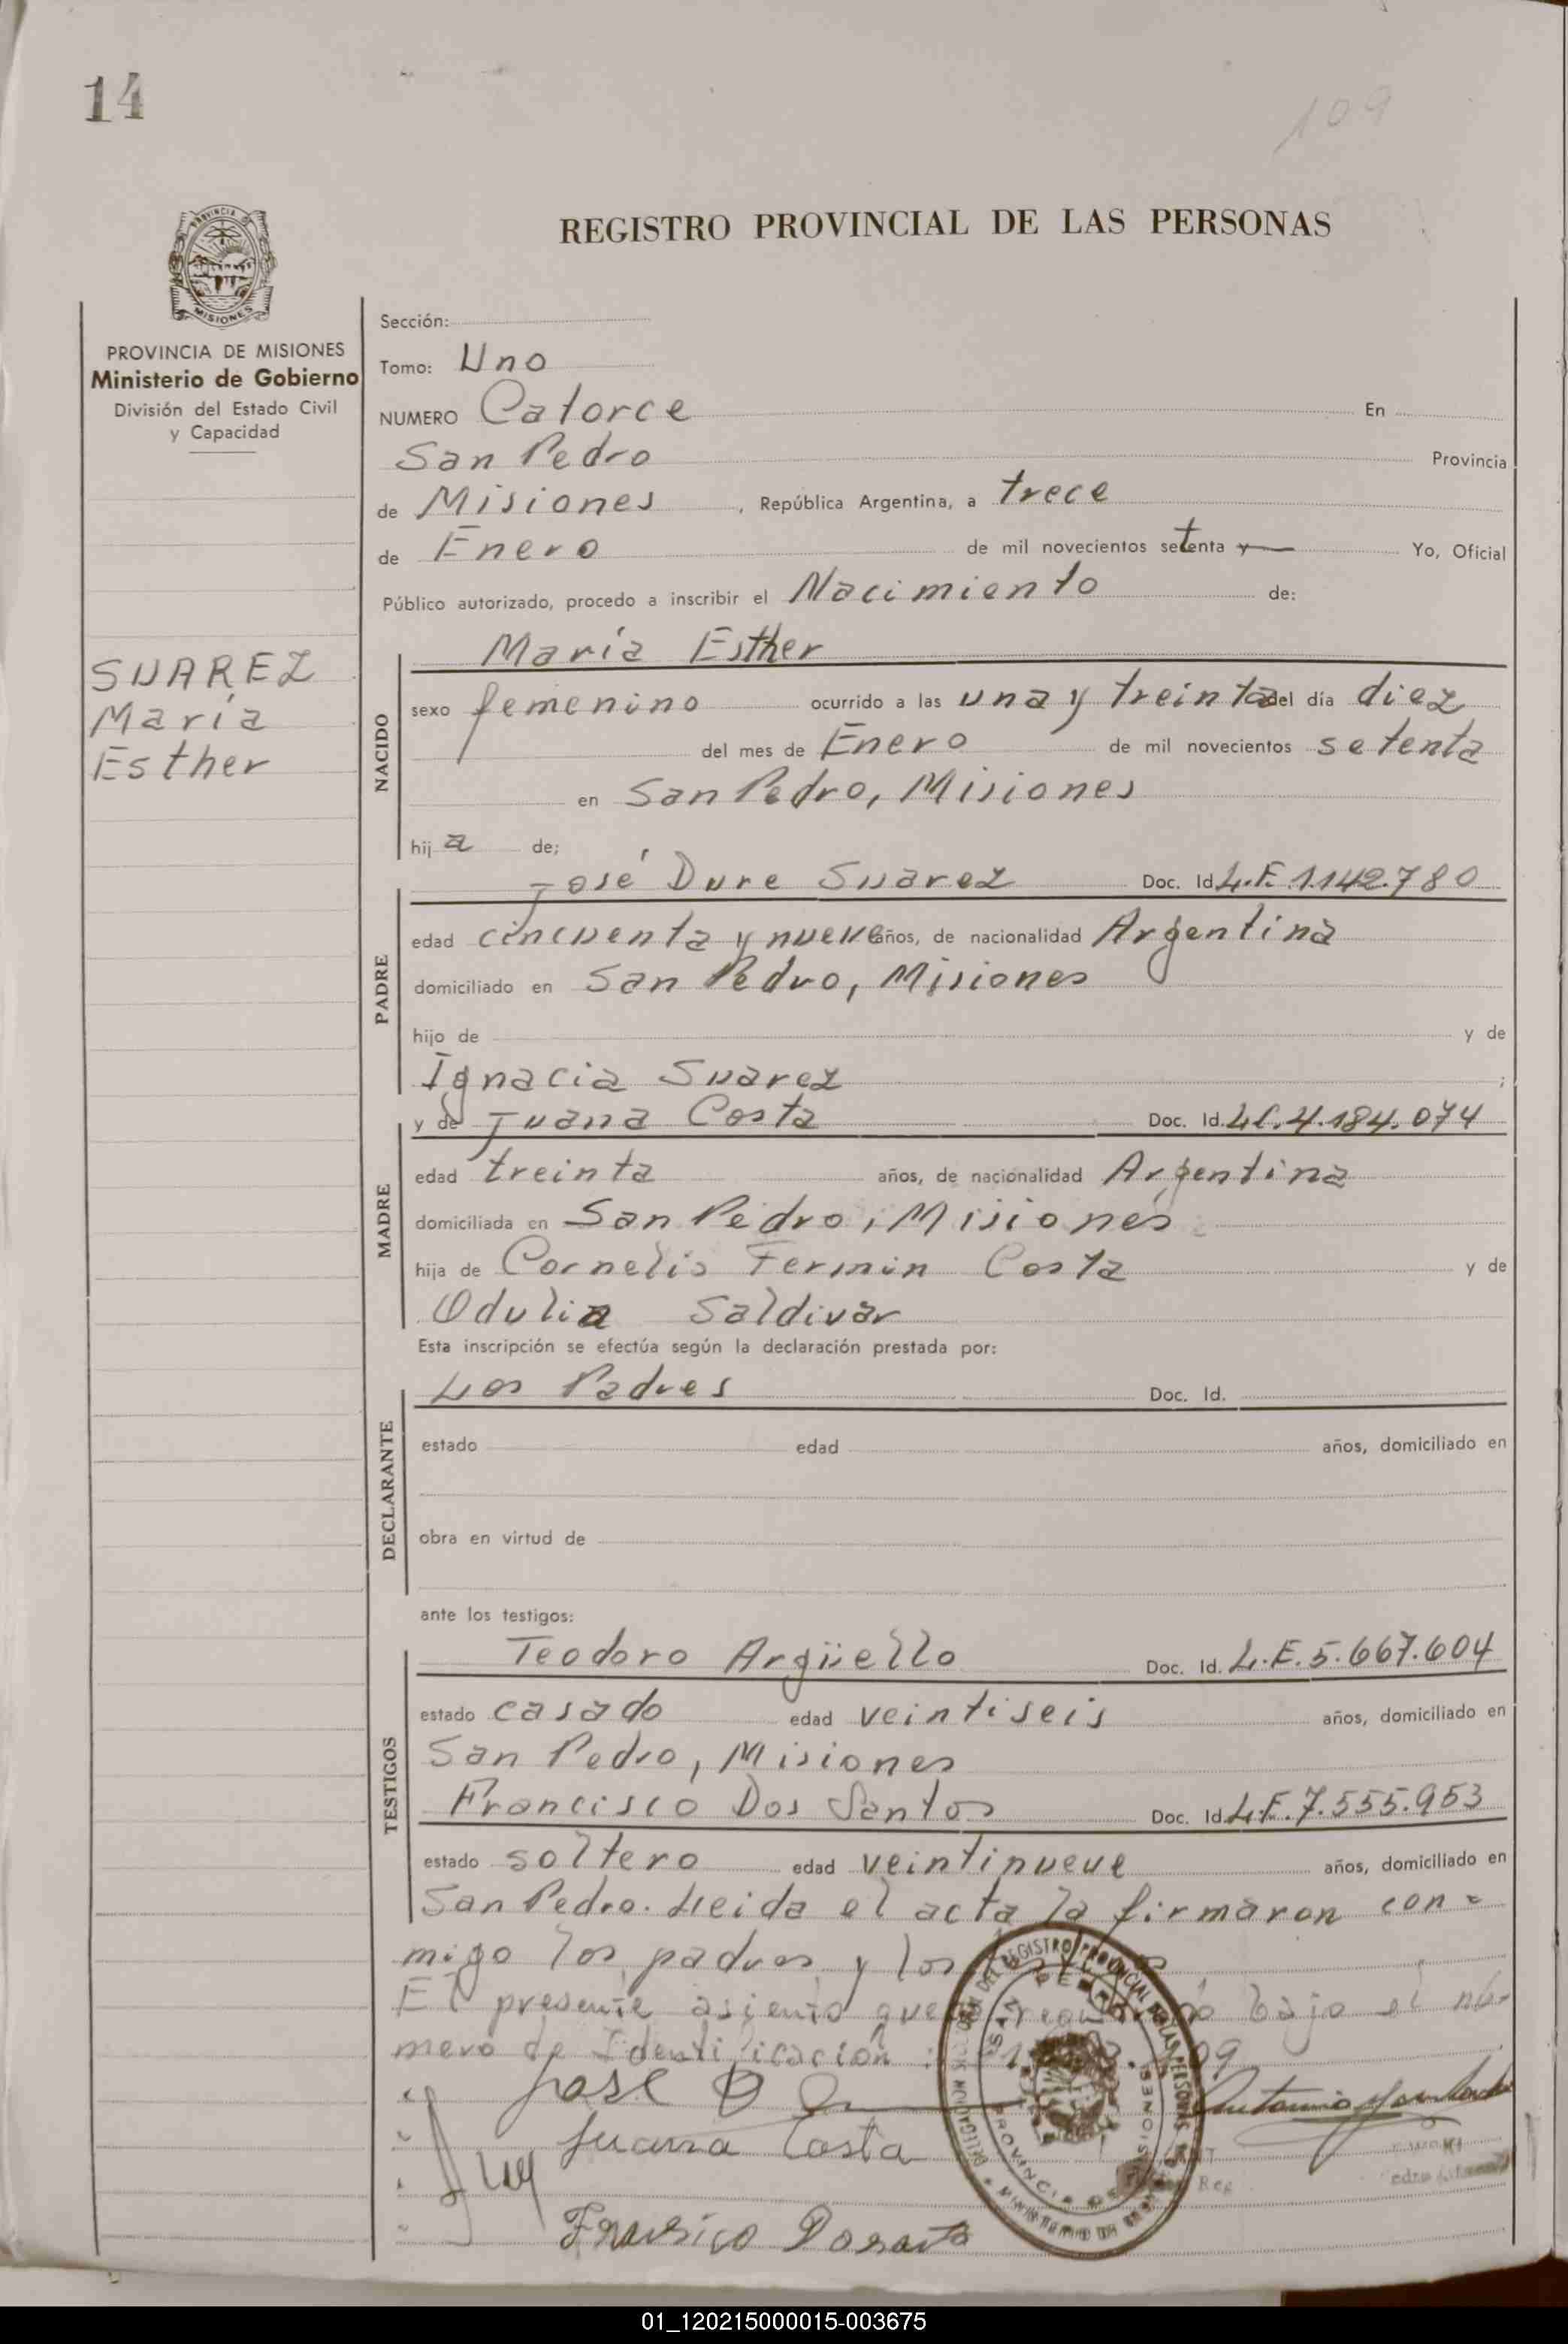 14
109
REGISTRO PROVINCIAL DE LAS PERSONAS
PROVINCIA DE MISIONES
Ministerio de Gobierno
División del Estado Civil
y Capacidad
SUAREZ
María
Esther
Sección:
Tomo: Uno
NUMERO Catorce En
San Pedro Provincia
de Misiones, República Argentina, a trece
de Enero de mil novecientos setenta y Yo, Oficial
Público autorizado, procedo a inscribir el Nacimiento de:
NACIDO
María Esther
sexo femenino ocurrido a las una y treinta del día diez
del mes de Enero de mil novecientos setenta
en San Pedro, Misiones
hija de;
PADRE
José Dure Suarez Doc. Id. L.E. 1.142.780
edad cincuenta y nueve años, de nacionalidad Argentina
domiciliado en San Pedro, Misiones
hijo de y de
Ignacia Suarez ;
MADRE
y de Juana Costa Doc. Id. L.C. 4.184.074
edad treinta años, de nacionalidad Argentina
domiciliada en San Pedro, Misiones
hija de Cornelio Fermin Costa y de
Odulia Saldivar
Esta inscripción se efectúa según la declaración prestada por:
DECLARANTE
Los Padres Doc. Id.
estado edad años, domiciliado en
obra en virtud de
ante los testigos:
TESTIGOS
Teodoro Argüello Doc. Id. L.E. 5.667.604
estado casado edad veintiseis años, domiciliado en
San Pedro, Misiones
Francisco Dos Santos Doc. Id. L.E. 7.555.953
estado soltero edad veintinueve años, domiciliado en
San Pedro. Leida el acta la firmaron con=
migo los padres y los
El presente asiento bajo el nú-
mero de Identificación :
José D
Juana Costa
DELEGACION DEL REGISTRO PROVINCIAL DE LAS PERSONAS
SAN PEDRO
PROVINCIA DE MISIONES
01_120215000015-003675